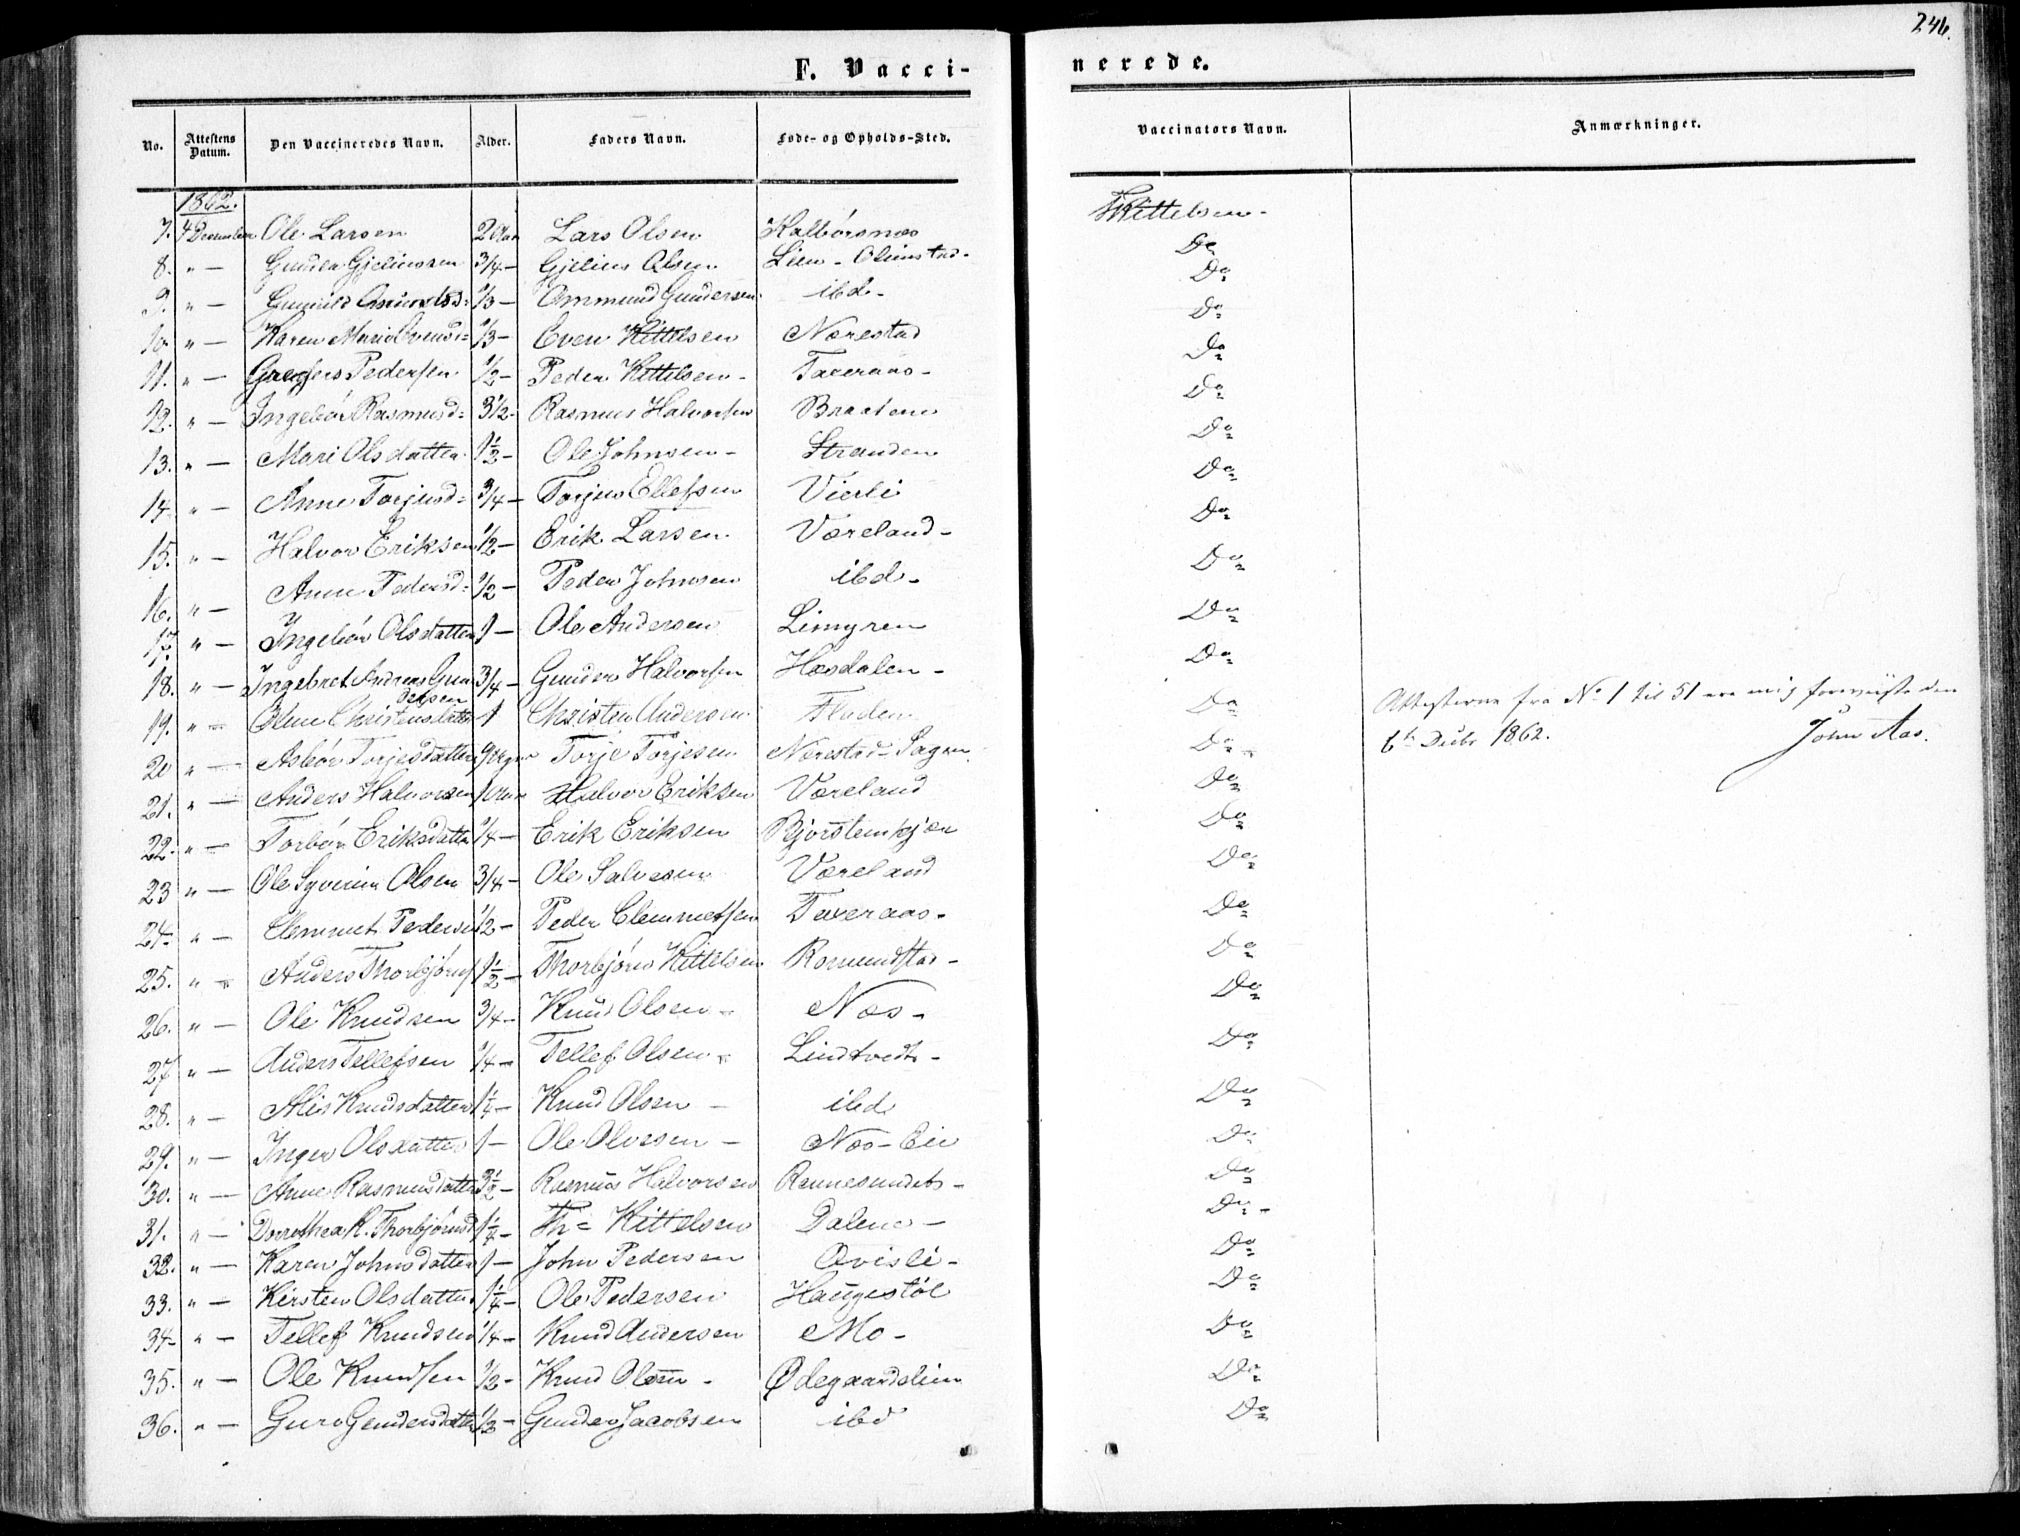 246.
F. Vacci-
nerede.
No. Attestens Datum. Den Vaccineredes Navn. Alder. Faders Navn. Føde- og Opholds-Sted. Vaccinators Navn. Anmærkninger.
1862.
7. 4 December Ole Larsen 2 Aar Lars Olsen Kalbörsnæs Kittelsen-
8. " — Gunder Gjeliussen 3/4 — Gjelius Olsen Lien - Olimstad- Do
9. " — Gunnild 1/3 — Ommund Gundersen ibd- Do
10 " — Karen Marie Evensd= 1/3 — Even Kittelsen Nærestad Do
11. " — Gregers Pedersen 1/2 — Peder Kittelsen - Taxeraas - Do
12. " — Ingebór Rasmusd= 3 1/2 - Rasmus Halvorsen Braaten Do
13. " — Mari Olsdatter 1 1/2 - Ole Johnsen - Stranden Do
14. " — Anne Torjusd= 3/4 — Torjus Ellefsen Vierli Do
15. " — Halvor Eriksen 1/2 — Erik Larsen Væreland - Do
16. " — Anne Pedersd= 1/2 — Peder Johnsen ibd - Do
17. " — Ingebór Olsdatter 1 — Ole Andersen Limyren Do
18. " — Ingebret Andreas Gundersen 3/4 — Gunder Halvorsen Hæsdalen - Do
19. " — Oline Christensdatter 1 Christen Andersen Floden Do
Attesterne fra No 1 til 51 ere mig foreviiste den
20 " — Asbór Torjesdatter 9 Torje Torjesen Nærestad-Sagen Do
6te Decbr 1862. John Aas.
21. " — Anders Halvorsen 1 Aar Halvor Eriksen Væreland Do
22. " — Torbór Eriksdatter 1/4 — Erik Eriksen Bjorstemkjær Do
23 " — Ole Syverin Olsen 3/4 — Ole Salvesen Væreland Do
24. " — Clemmet Pedersen 1/2 — Peder Clemmetsen Taxeraas - Do
25. " — Anders Thorbjörns 1 1/2 — Thorbjörn Kittelsen Romundstad - Do
26. " — Ole Knudsen 3/4 — Knud Olsen - Næs - Do
27 " — Anders Tellefsen 1/4 — Tellef Olsen - Lindtvedt - Do
28. " — Alis Knudsdatter 1 1/4 — Knud Olsen — ibd Do
29. " — Inger Olsdatter 1 — Ole Olvesen — Næs - Eie Do
30. " — Anne Rasmusdatter 3 1/2 — Rasmus Halvorsen Rennesundet - Do
31. " — Dorothea K. Thorbjörnsd 1 1/4 — Th= Kittelsen Dalene — Do -
32. " — Karen Johnsdatter 1 — John Pedersen Qvisli - Do
33. " — Kirsten Olsdatter 1 1/4 — Ole Pedersen Haugestöl Do
34 " — Tellef Knudsen 1/4 — Knud Andersen Mo - Do
35. " — Ole Knudsen 1/2 - Knud Olsen - Ødegaardslien Do
36. " — Guro Gundersdatter 1/2 — Gunder Jacobsen ibd Do